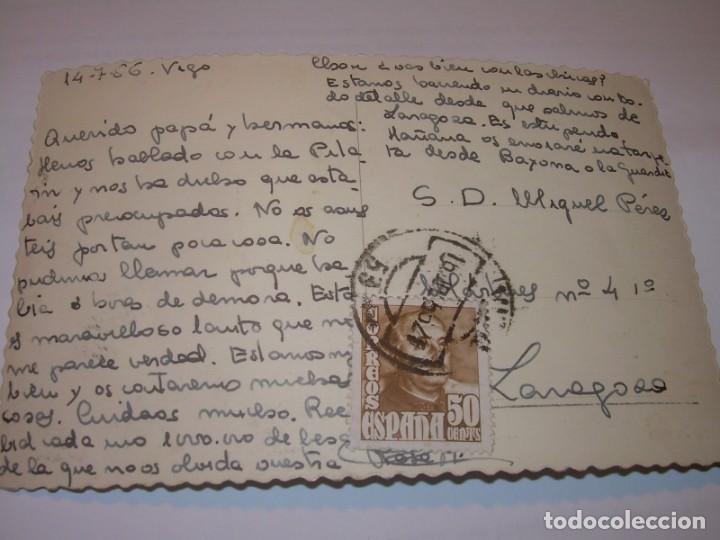 14-7-56. Vigo
Querido papá y hermanos:
Hemos hablado con la Pila
rin y nos ha dicho que esta
bais preocupados. No os asus
teis por tan poca cosa. No
pudimos llamar porque ha
bia 6 horas de demora. Esto
es maravilloso tanto que no
me parece verdad. Estamos
bien y os contaremos muchas
cosas. Cuidaos mucho. Reci
bid cada uno 1000.000 de besos
de la que no os olvida vuestra
bien con las chicas?
Estamos haciendo un diario con to
do detalle desde que salimos de
Zaragoza. Es estupendo
Mañana os enviaré una tarje
ta desde Bayona o la Guardia
S. D. Miguel Pérez
nº 4 1º
Zaragoza
CORREOS
ESPAÑA 50
CENTS
todocoleccion.net